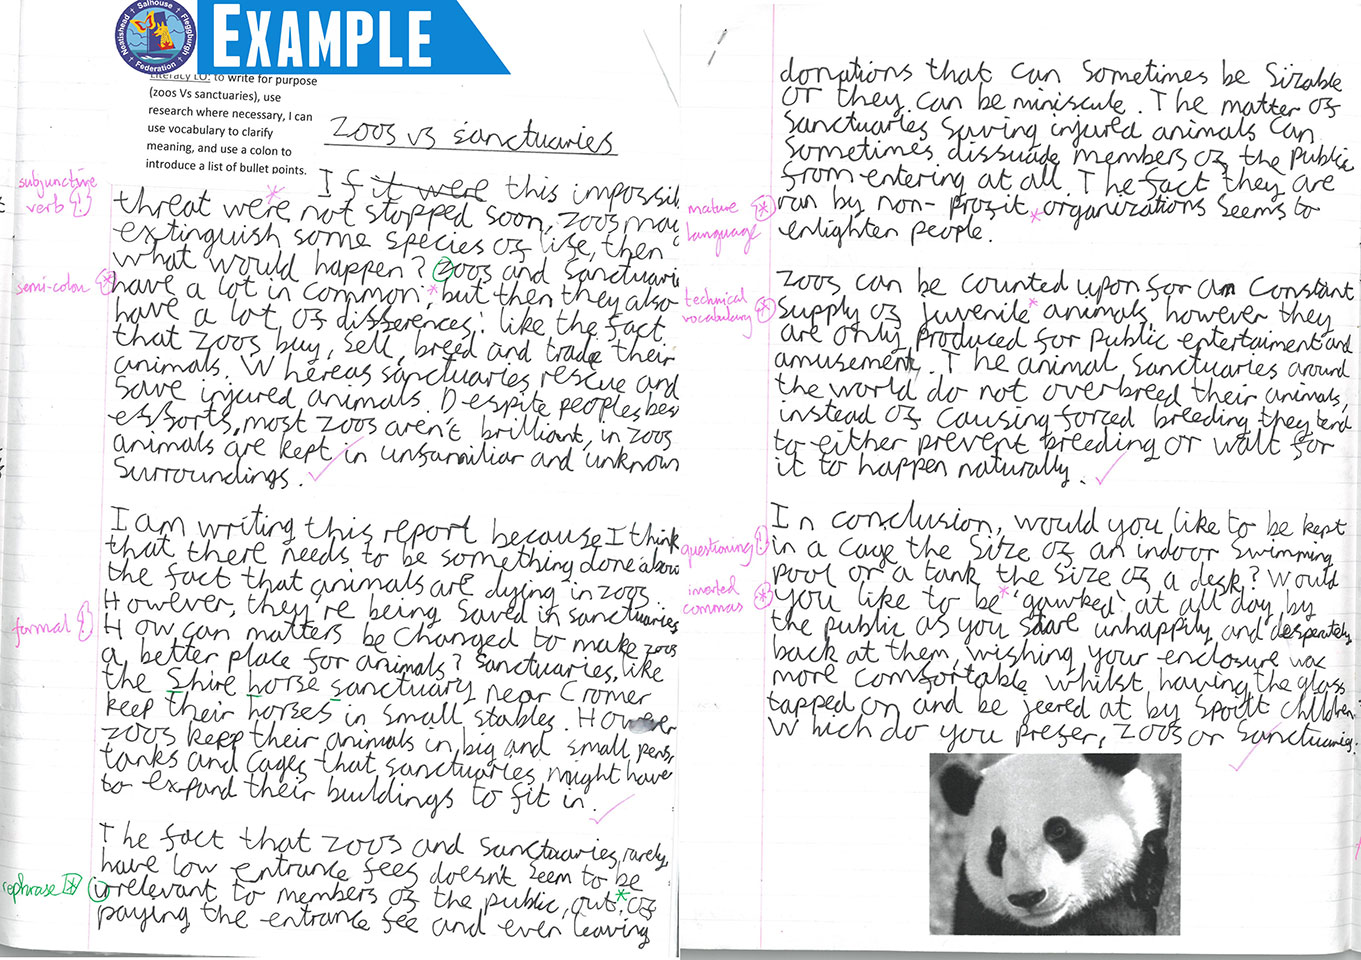 Neatishead Salhouse Fleggburgh
Federation
EXAMPLE
Literacy LO: to write for purpose
(zoos Vs sanctuaries), use
research where necessary, I can
use vocabulary to clarify
meaning, and use a colon to
introduce a list of bullet points.
Zoos vs sanctuaries
subjunctive
verb
If it were this impossib
threat were not stopped soon, zoos may
extinguish some species of life, then
what would happen? Zoos and Sanctuarie
semi-colon
have a lot in common; but then they also
have a lot of differences: like the fact
that zoos buy, sell, breed and trade their
animals. Whereas sanctuaries rescue and
save injured animals. Despite peoples bes
efforts, most zoos aren't brilliant, in zoos
animals are kept in unfamiliar and unknown
surroundings.
I am writing this report because I think
that there needs to be something done abou
the fact that animals are dying in zoos.
However, they're being saved in sanctuaries
formal
How can matters be changed to make zoos
a better place for animals? Sanctuaries, like
the Shire horse sanctuary near Cromer
keep their horses in small stables. However
zoos keep their animals in big and small pens,
tanks and cages that sanctuaries might have
to expand their buildings to fit in.
The fact that zoos and sanctuaries, rarely,
have low entrance fees doesn't seem to be
rephrase
irrelevant to members of the public, out of
paying the entrance fee and even leaving
donations that can sometimes be sizable
or they can be miniscule. The matter of
sanctuaries saving injured animals can
sometimes dissuade members of the public
from entering at all. The fact they are
mature
language
run by non-profit organizations seems to
enlighten people.
Zoos can be counted upon for an constant
technical
vocabulary
supply of juvenile animals, however they
are only produced for public entertaiment and
amusement. The animal sanctuaries around
the world do not overbreed their animals,
instead of causing forced breeding they tend
to either prevent breeding or wait for
it to happen naturally.
In conclusion, would you like to be kept
questioning
in a cage the size of an indoor swimming
pool or a tank the size of a desk? Would
inverted
commas
you like to be 'gawked' at all day by
the public as you stare unhappily and desperately
back at them, wishing your enclosure was
more comfortable whilst having the glass
tapped on and be jeered at by spoilt children?
Which do you prefer, zoos or sanctuaries.